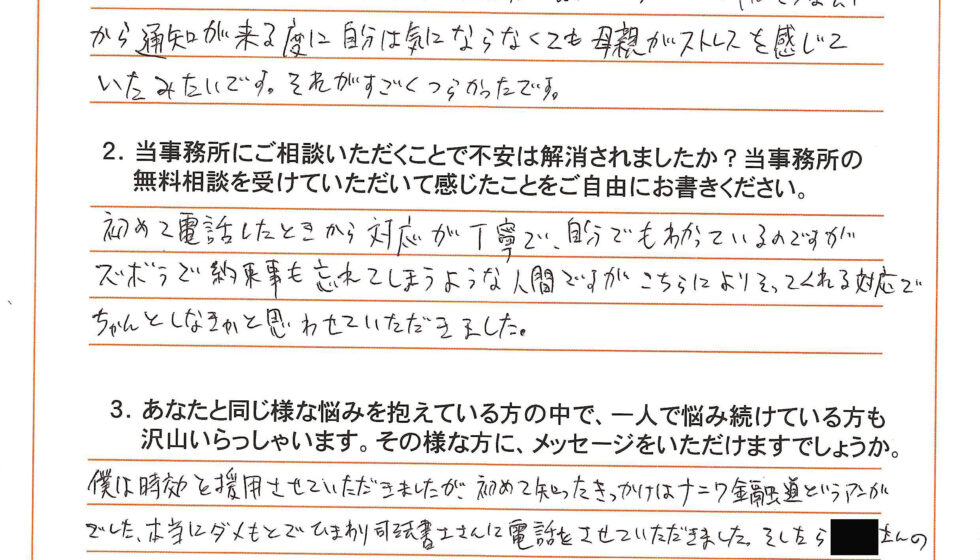 から通知が来る度に自分は気にならなくても母親がストレスを感じて
いたみたいです。それがすごくつらかったです。
2. 当事務所にご相談いただくことで不安は解消されましたか？当事務所の
無料相談を受けていただいて感じたことをご自由にお書きください。
初めて電話したときから対応が丁寧で、自分でもわかっているのですが
ズボラで約束事も忘れてしまうような人間ですがこちらによりそってくれる対応で
ちゃんとしなきゃと思わせていただきました。
3. あなたと同じ様な悩みを抱えている方の中で、一人で悩み続けている方も
沢山いらっしゃいます。その様な方に、メッセージをいただけますでしょうか。
僕は時効を援用させていただきましたが、初めて知ったきっかけはナニワ金融道というマンガ
でした、本当にダメもとでひまわり司法書士さんに電話をさせていただきました。そしたら さんの